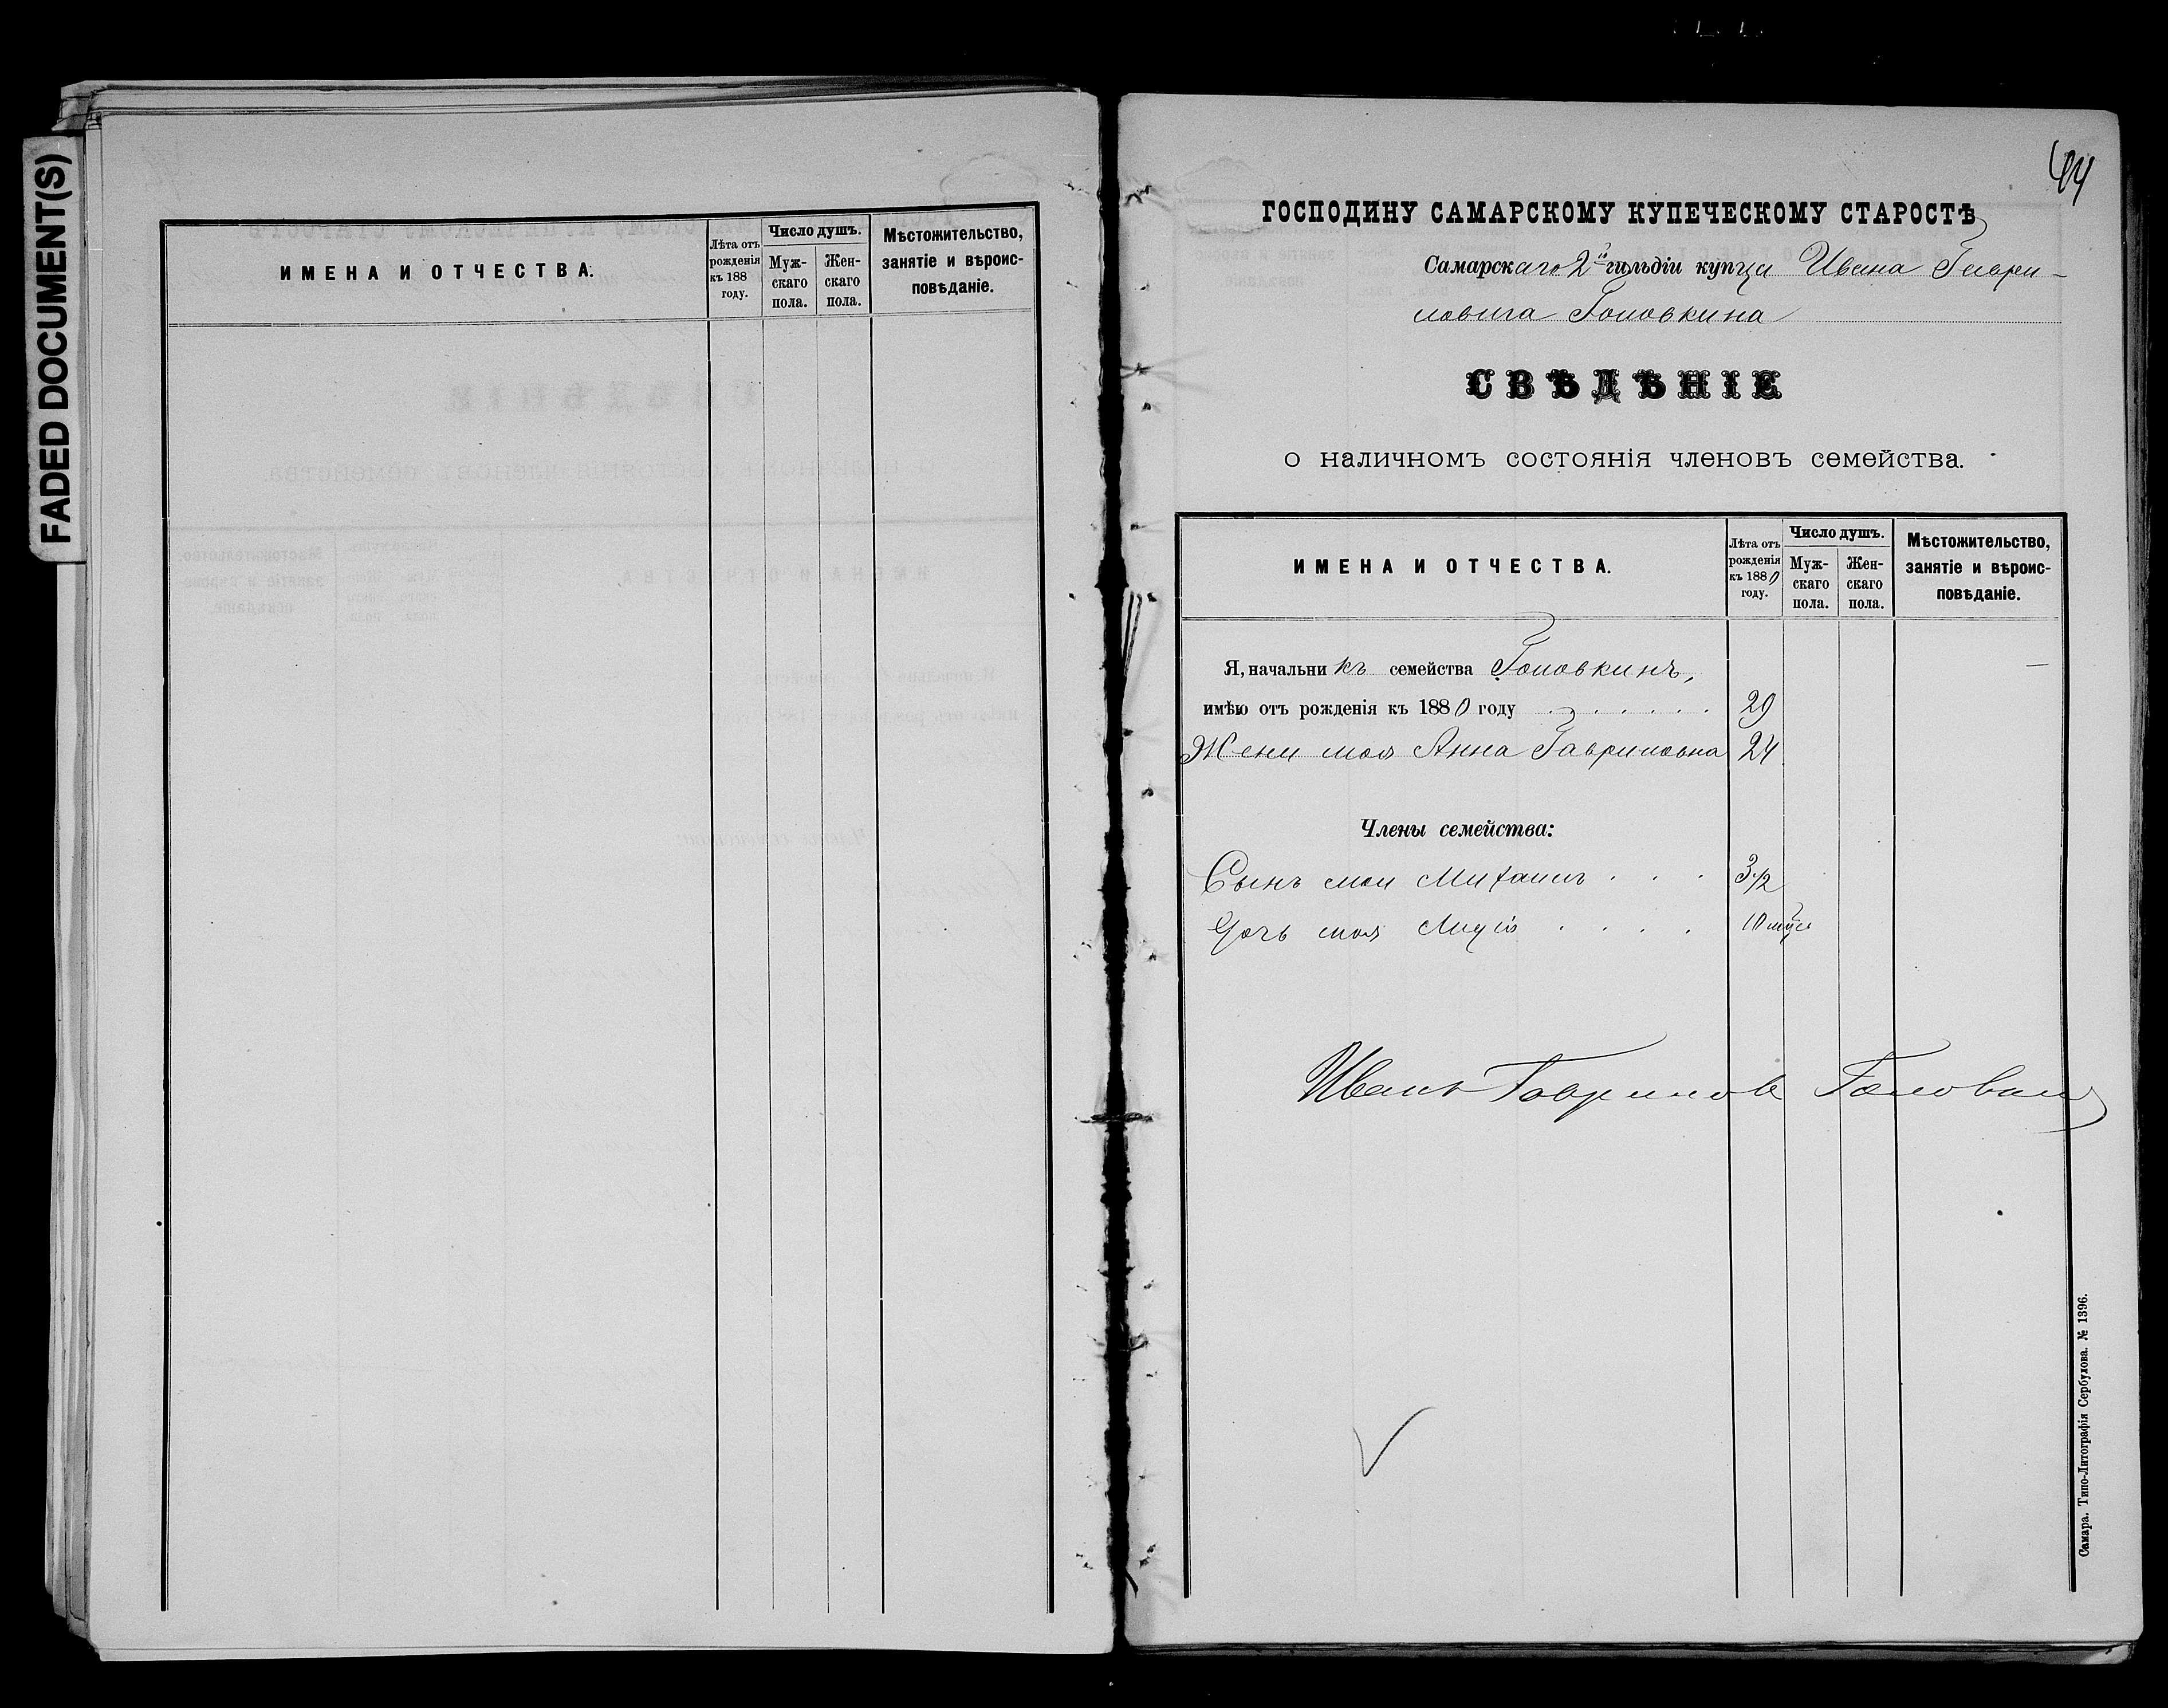 FADED DOCUMENT(S)
ИМЕНА И ОТЧЕСТВА.
Лѣта отъ рожденія къ 188 году.
Число душъ.
Мужскаго пола.
Женскаго пола.
Мѣстожительство, занятіе и вѣроисповѣданіе.
44
ГОСПОДИНУ САМАРСКОМУ КУПЕЧЕСКОМУ СТАРОСТѢ
Самарскаго 2й гильдіи купца Ивана Гаври-
ловича Головкина
СВѢДѢНІЕ
о наличномъ состоянія членовъ семейства.
ИМЕНА И ОТЧЕСТВА.
Лѣта отъ рожденія къ 1880 году.
Число душъ.
Мужскаго пола.
Женскаго пола.
Мѣстожительство, занятіе и вѣроисповѣданіе.
Я, начальникъ семейства Головкинъ,
имѣю отъ рожденія къ 1880 году . . . . . . 29
Жена моя Анна Гавриловна 24
Члены семейства:
Сынъ мой Михаилъ . . . 3 1/2
Дочь моя Лидія . . . . 10
Иванъ Гаврилов Головкин
Самара. Типо-Литографія Сербулова. № 1396.